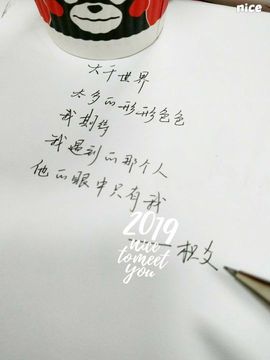 nice
大千世界
太多的形形色色
我期待
我遇到的那个人
他的眼中只有我
2019
nice
to meet
you
权文